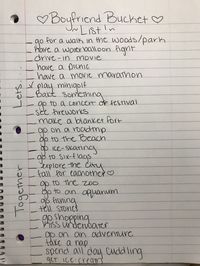 ♡Boyfriend Bucket♡
List!
go for a walk in the woods/park
have a waterballoon fight
drive-in movie
have a picnic
have a movie marathon
✓ play minigolf
Bake something
go to a concert or festival
see fireworks
make a blanket fort
go on a roadtrip
go to the Beach
go ice-skating
go to six flags
explore the city
fall for eachother♡
go to the zoo
go to an aquarium
go fishing
tell stories
go shopping
kiss underwater
go on an adventure
take a nap
spend all day cuddling
get ice-cream
Lets
Together